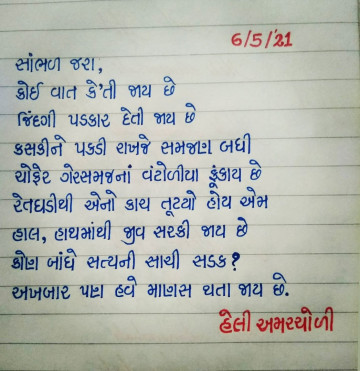 6/5/'21
સાંભળ જરા,
કોઈ વાત કે'તી જાય છે
જિંદગી પડકાર દેતી જાય છે
કસકીને પકડી રાખજે સમજણ બધી
ચોફેર ગેરસમજનાં વંટોળીયા ફૂંકાય છે
રેતઘડીથી એનો કાચ તૂટયો હોય એમ
હાલ, હાથમાંથી જીવ સરકી જાય છે
કોણ બાંધે સત્યની સાચી સડક?
અખબાર પણ હવે માણસ થતા જાય છે.
હેલી અમરચોળી